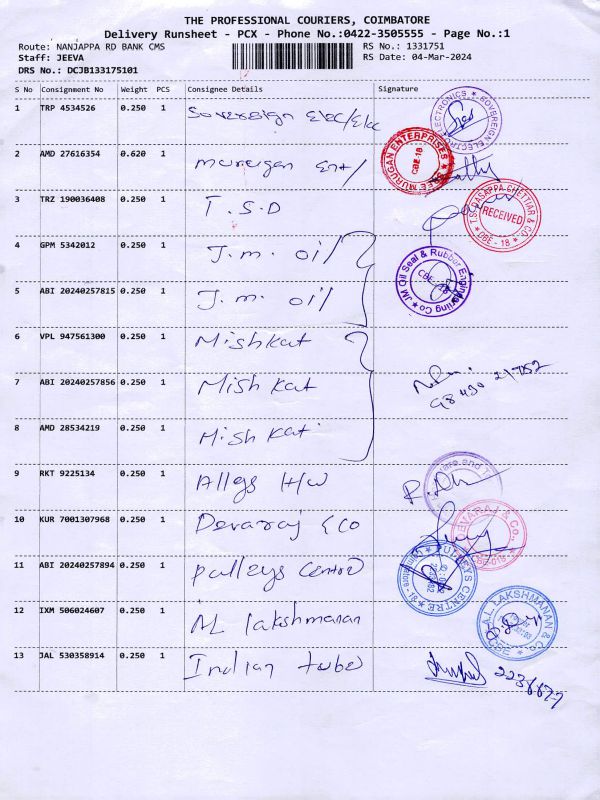 THE PROFESSIONAL COURIERS, COIMBATORE
Delivery Runsheet - PCX - Phone No.:0422-3505555 - Page No.:1
Route: NANJAPPA RD BANK CMS RS No.: 1331751
Staff: JEEVA RS Date: 04-Mar-2024
DRS No.: DCJB133175101
S No Consignment No Weight PCS Consignee Details Signature
1 TRP 4534526 0.250 1 Sovereign Elec/Elec
2 AMD 27616354 0.620 1 Murugan Ent/
3 TRZ 190036408 0.250 1 T.S.D
4 GPM 5342012 0.250 1 J.m. oil
5 ABI 20240257815 0.250 1 J.m. oil
6 VPL 947561300 0.250 1 Mishkat
7 ABI 20240257856 0.250 1 Mishkat
8 AMD 28534219 0.250 1 Mishkat
9 RKT 9225134 0.250 1 H/W
10 KUR 7001307968 0.250 1 Devaraj & Co
11 ABI 20240257894 0.250 1 Pulleys Centre
12 IXM 506024607 0.250 1 AL Lakshmanan
13 JAL 530358914 0.250 1 Indian tube
ELECTRONICS * SOVEREIGN ELECTR
MURUGAN ENTERPRISES
CBE-18
T.S. DASAPPA CHETTIAR & CO
RECEIVED
CBE - 18
JM Oil Seal & Rubber Engineering Co
CBE - 18
EVARAJ & Co.,
PULLEYS CENTRE
A.L. LAKSHMANAN & CO
CBE